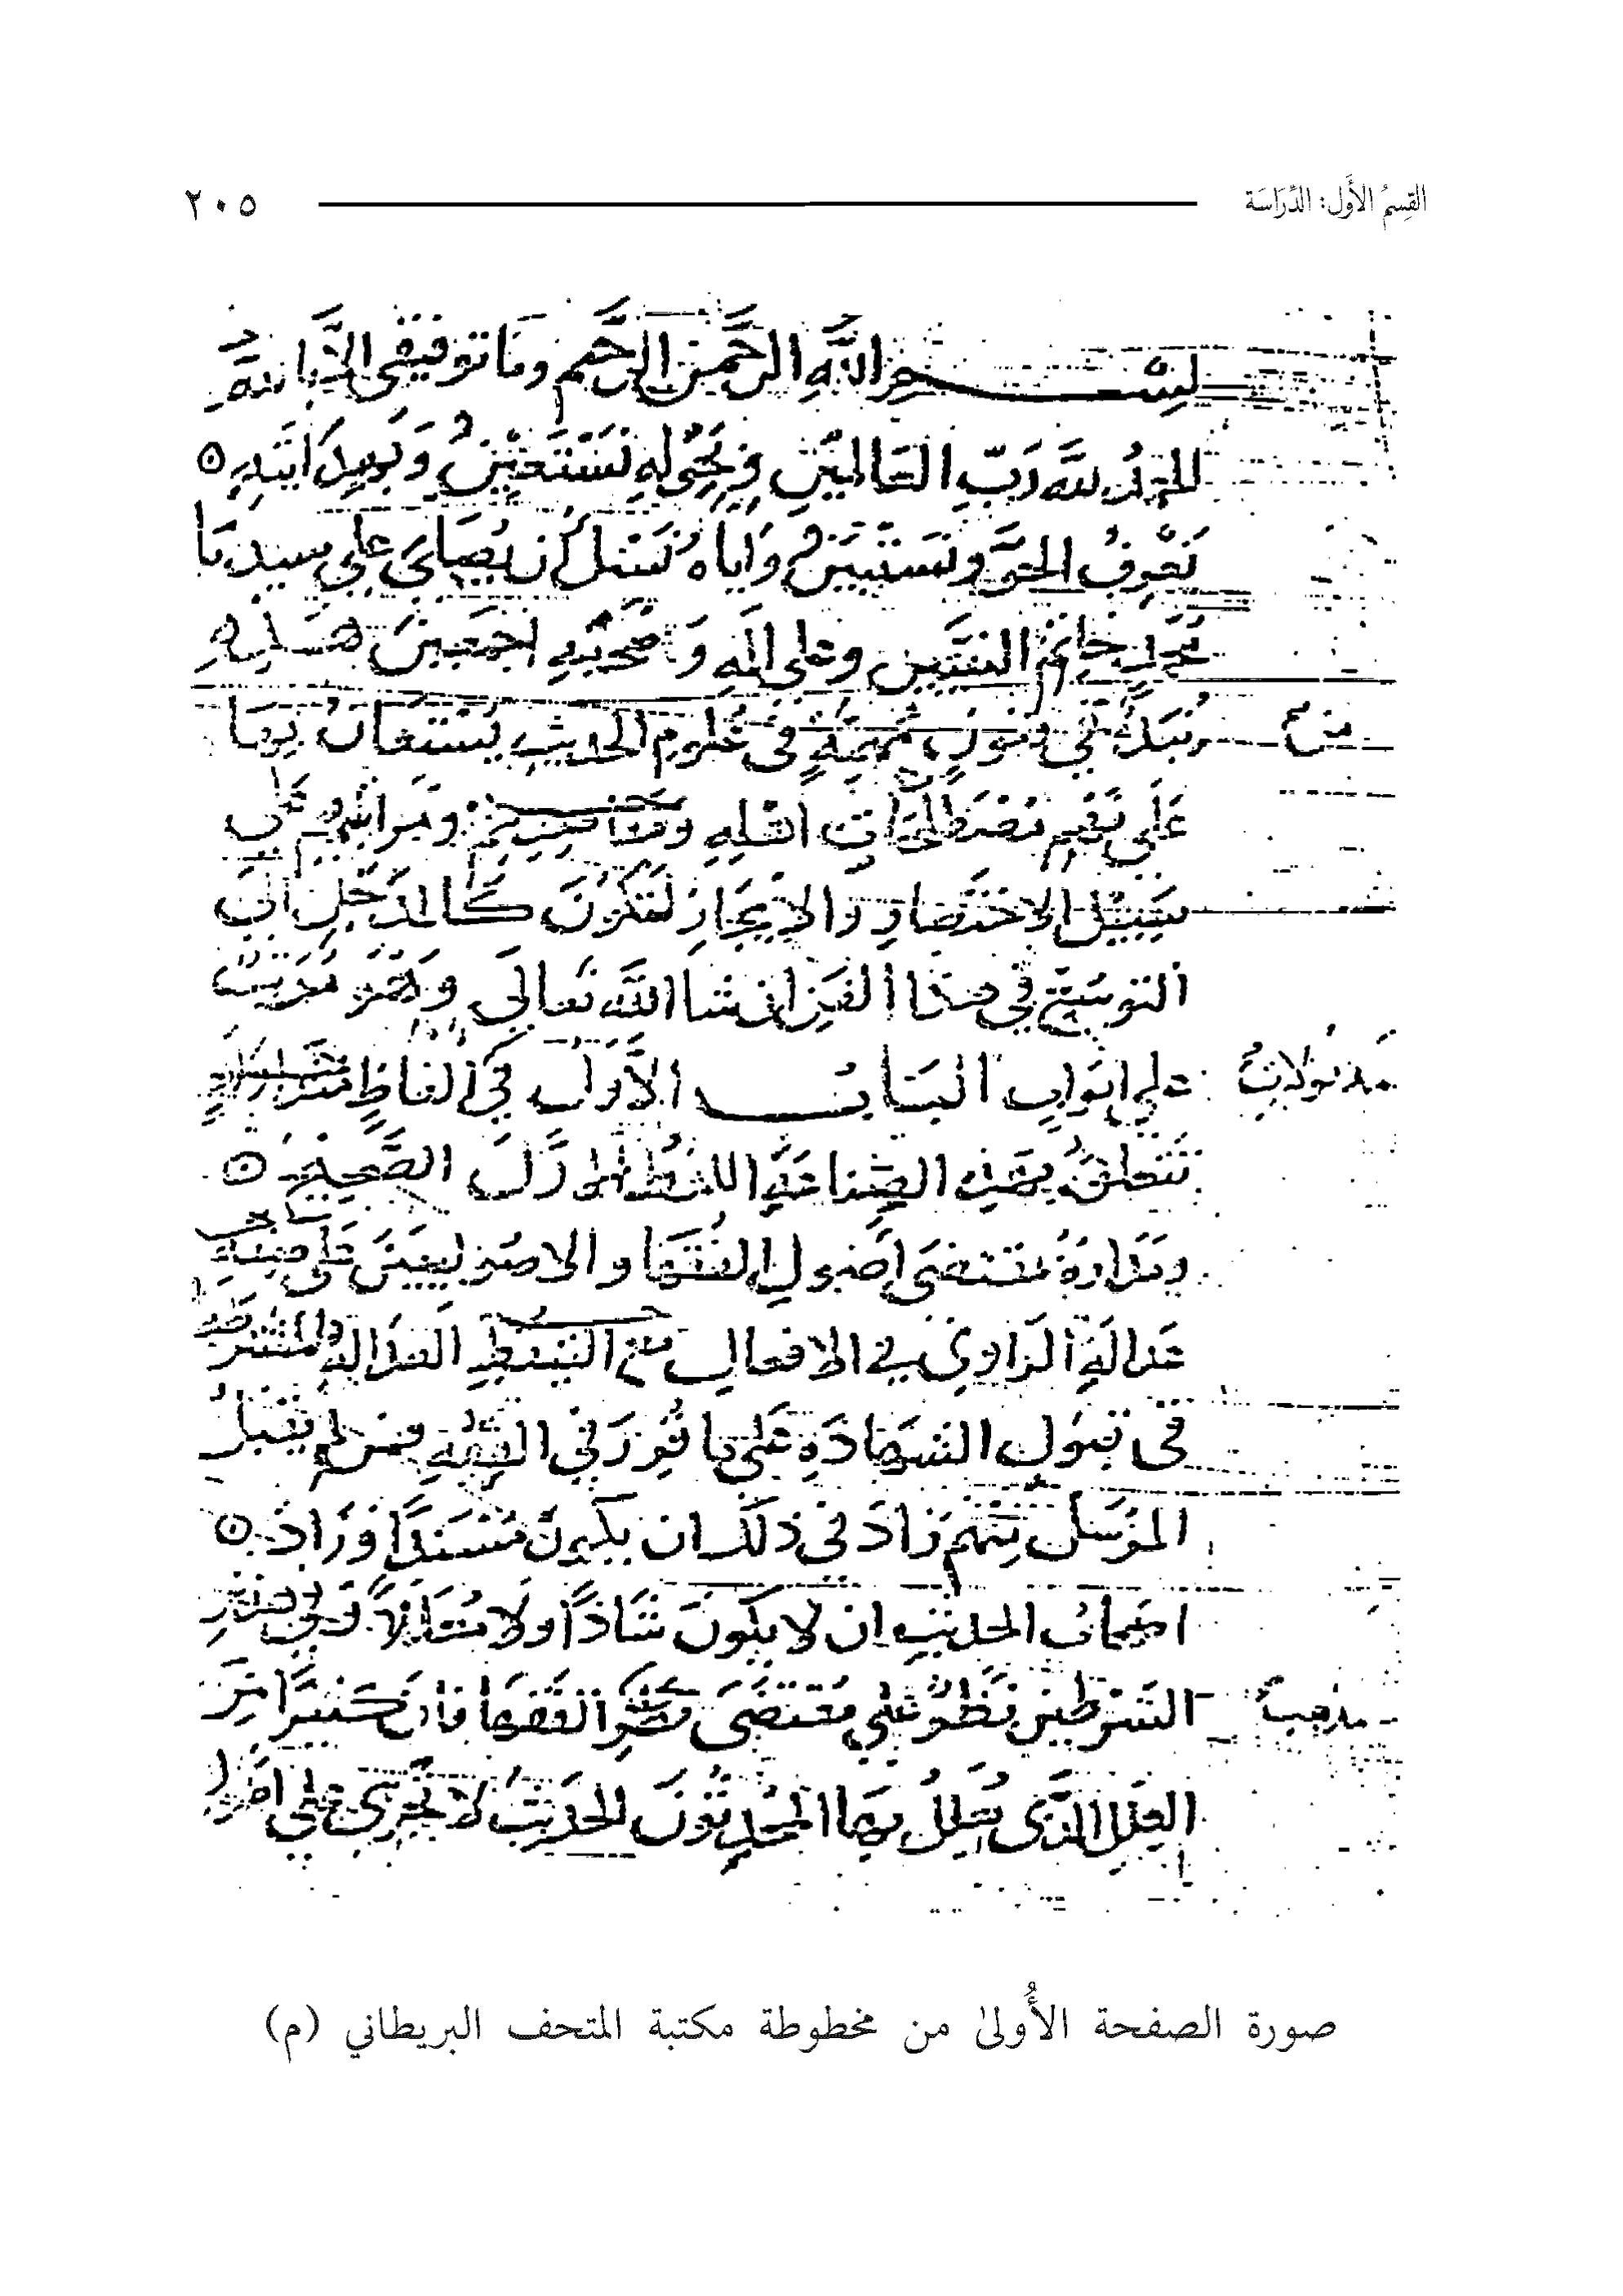 القِسمُ الأَوَّل: الدِّرَاسَة ٢٠٥
بسم اللهِ الرَّحمن الرَّحيم وما توفيقي الا بالله
الحمدُ لله رَبِّ العَالمين وبحوله نَسْتَعينُ وَبهدايته
نَعْرِفُ الحق ونَستبينُ وَاياه نَسْئل ان يُصلي على سيدنا
محمد خاتم النبيين وعلى اله وَصحبه اجمَعين هَذِه
نُبَذٌ من فنونٍ مُهِمَّةٍ في عُلومِ الحديثِ يُسْتعانُ بِهَا
من
عَلى فَهم مُصْطلحاتِ اهلِهِ ومَراتبهم على
سَبيل الاختصارِ والاِيجازِ لتكونَ كَالمدْخل الى
التوسُّع في هذا الفَن ان شا الله تعالى وَهُو مُرتبٌ
على ابوابٍ البَابُ الأَوّل في الفاظٍ
مدلولات
تتعلقُ بهذه الصِّناعَةِ اللفظُ الاوّل الصَّحيح
ومَدارهُ بمقتضى اصُول الفُقَها والاصُوليين عَلى صِفَة
عدالَةِ الرَاوي في الافعال مع التيقظِ العدالة المشترطة
في قبُول الشهادَةِ عَلى ما قُرِّرَ في الفِقْهِ فمن لم يقبلْ
المُرْسَل منهم زادَ في ذلك ان يكونَ مُسْنَدًا وزاد
اصحابُ الحديثِ ان لا يكونَ شاذًا ولا مُعَلَّلا وفي هذين
الشَرطين نَظرٌ على مُقتضَى نظرِ الفُقَها فان كَثيرًا مِنَ
مذهب
العِلَلِ الذي يُعلِّلُ بها المحدِّثُونَ الحديثَ لا تَجْري على اصُول
صورة الصفحة الأُولىٰ من مخطوطة مكتبة المتحف البريطاني (م)